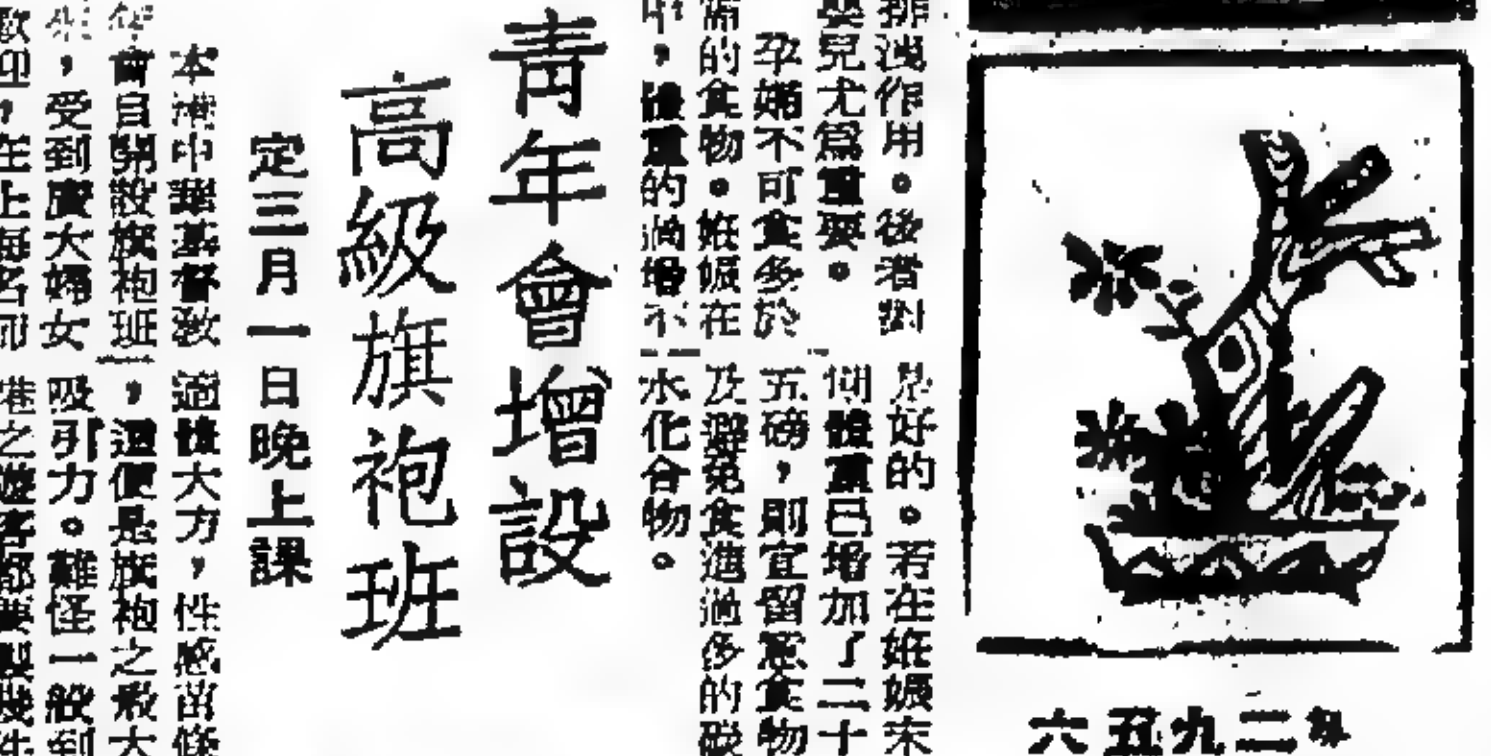 六五九二年
排洩作用。後者對
嬰兒尤爲重要。
孕婦不可食多於
需的食物。妊娠在
中,體重的過增不
是好的。若在妊娠末
體重已增加了二十
五磅,則宜留意食物
及避免食進過多的碳
水化合物。
青年會增設
高級旗袍班
定三月一日晚上課
本港中華基督教
年會自開設旗袍班
來,受到廣大婦女
歡迎,在上海名師
適體大方,性感苗條
,這便是旗袍之最大
吸引力。難怪一般到
港之遊客都要製幾件